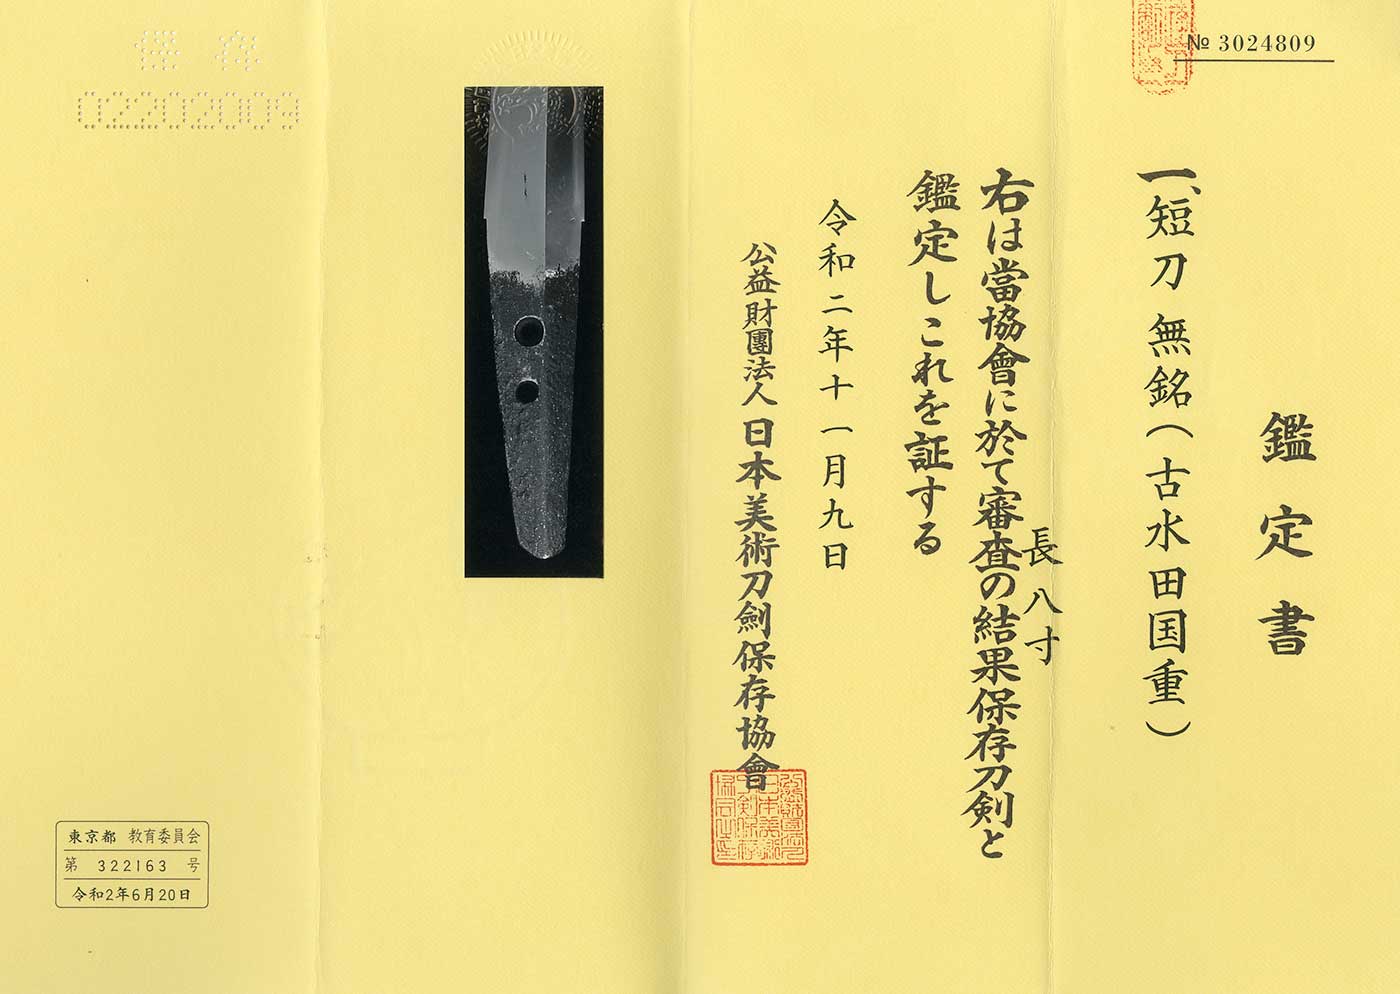 № 3024809
鑑定書
一、短刀 無銘(古水田国重)
長八寸
右は當協會に於て審査の結果保存刀剣と
鑑定しこれを証する
令和二年十一月九日
公益財團法人 日本美術刀劍保存協會
保存
02202009
東京都 教育委員会
第 322163 号
令和2年6月20日